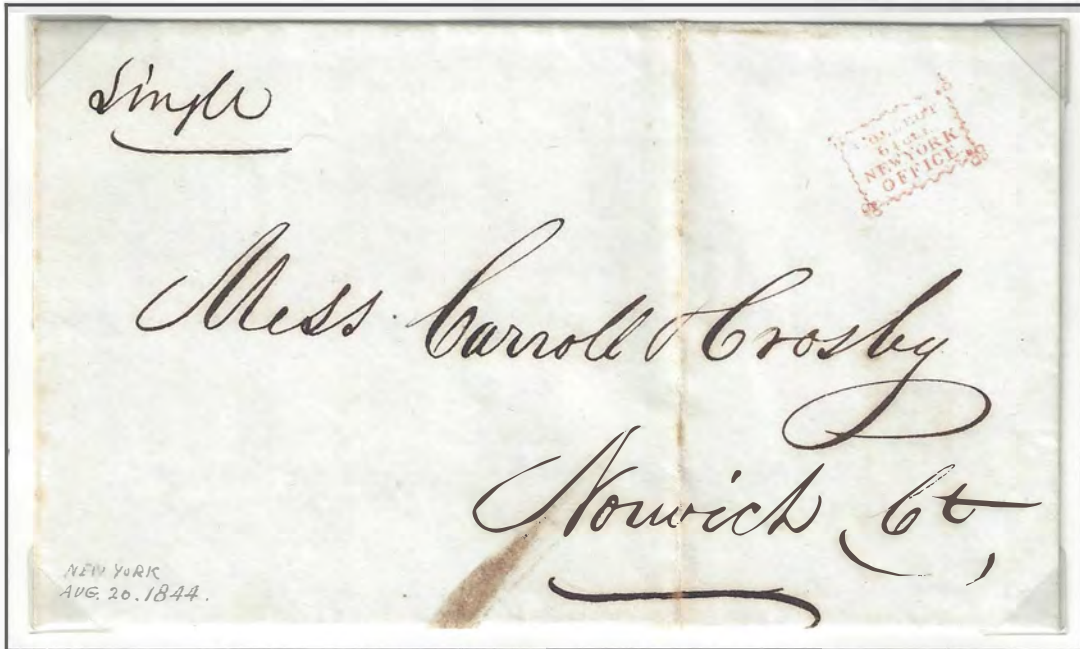 Single
NEW YORK
OFFICE
Mess. Carroll & Crosby
Norwich Ct,
NEW YORK
AUG. 20. 1844.